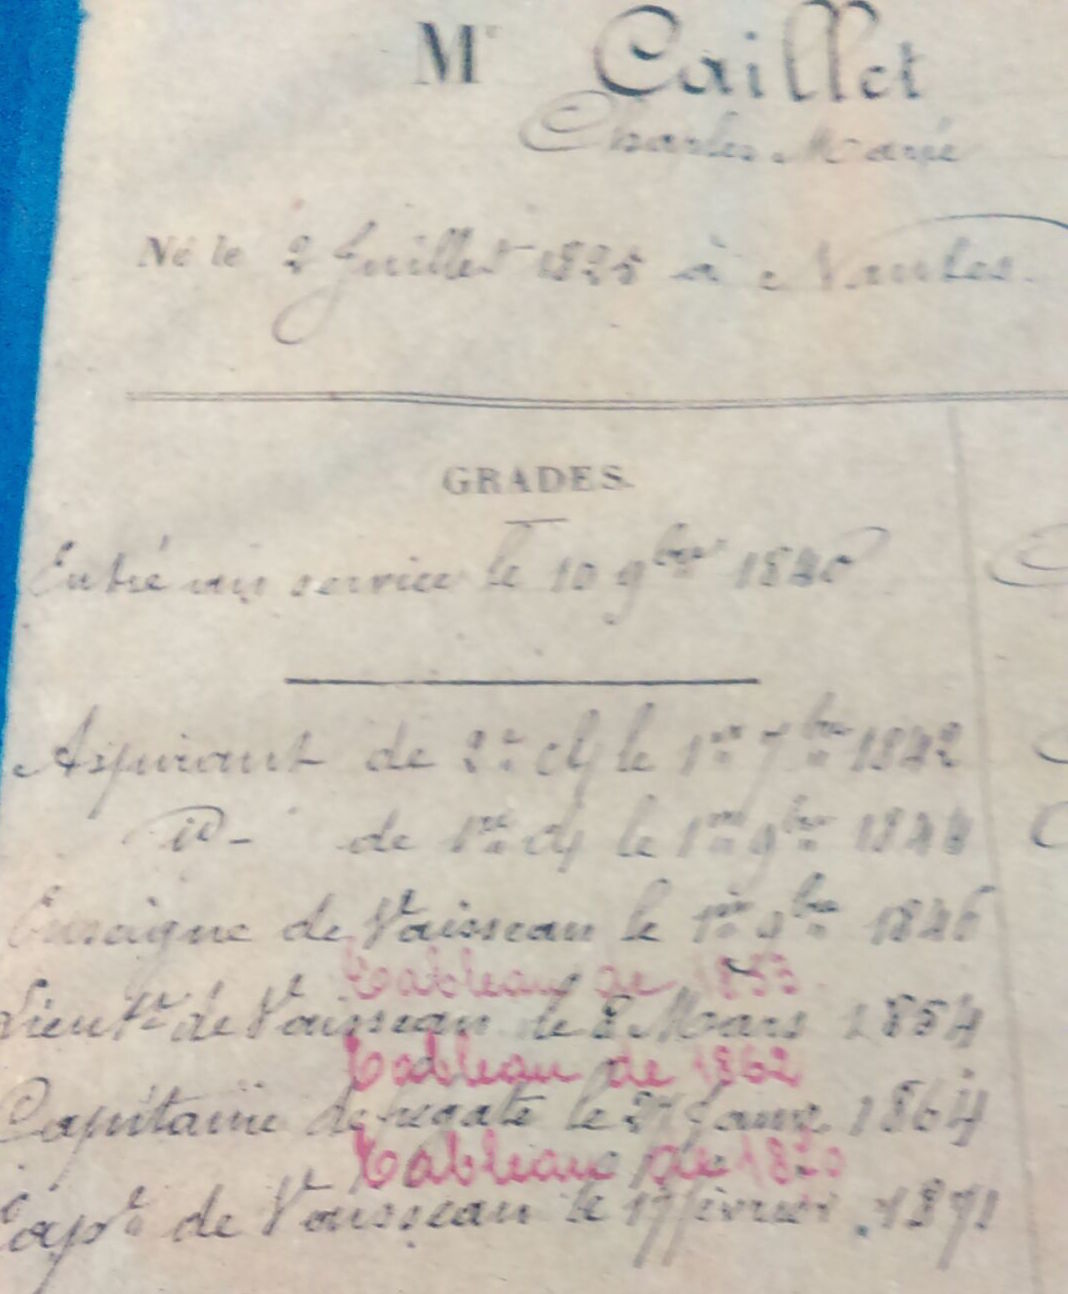 Mr Caillet
Charles Marie
Né le 2 Juillet 1825 à Nantes.
GRADES.
Entré au service le 10 9bre 1840
Aspirant de 2e cl le 1er 7bre 1842
id - de 1re cl le 1er 9bre 1844
Enseigne de Vaisseau le 1er 9bre 1846
Tableau de 1853
Lieut de Vaisseau le 8 Mars 1854
Tableau de 1862
Capitaine de frégate le 27 Janv. 1864
Tableau de 1870
Capt de Vaisseau le 17 février 1871